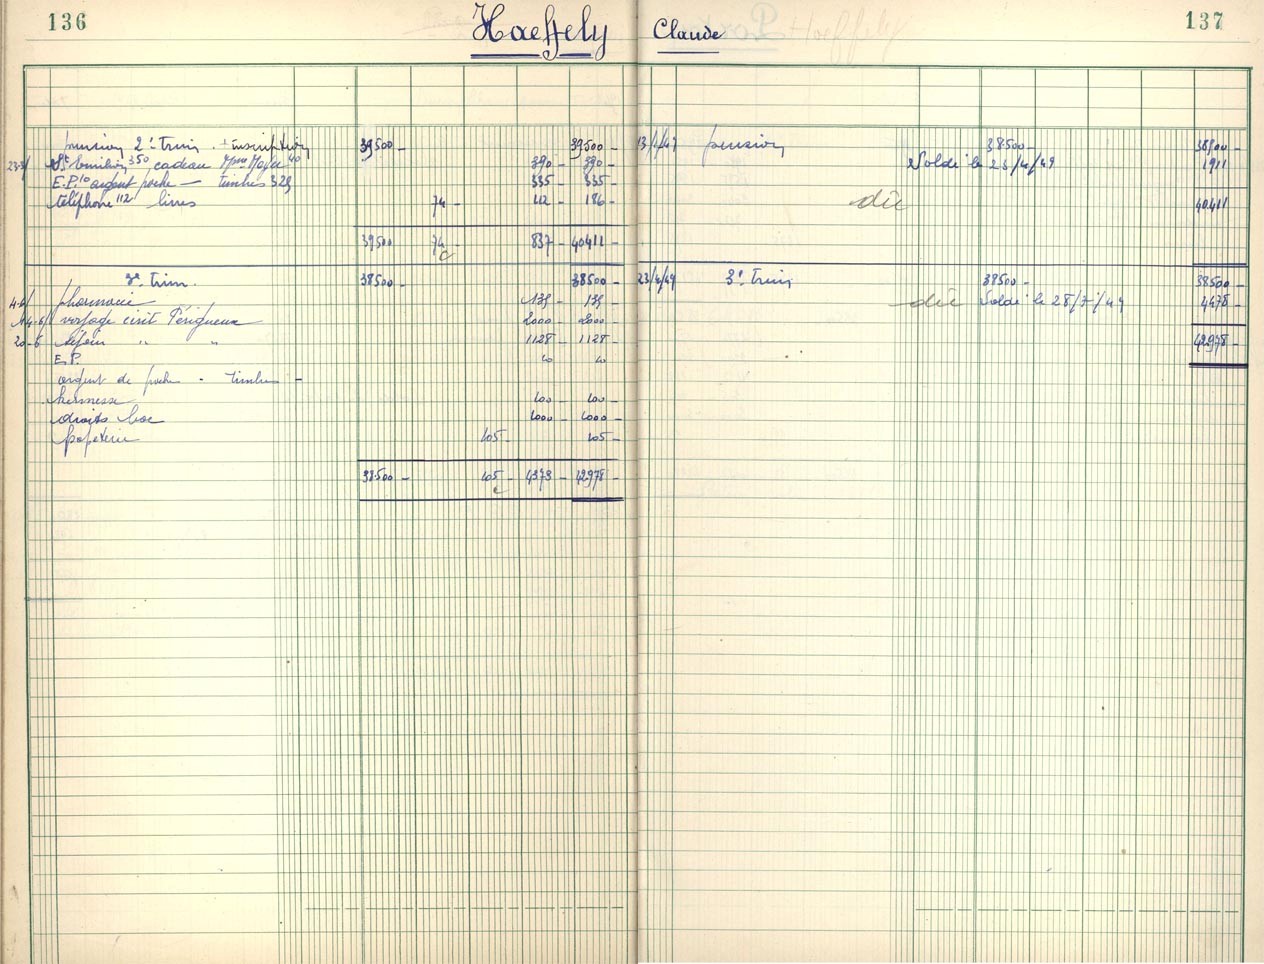 136
Haeffely Claude
137
pension 2e Trim. + inscription 39500 - 39500 -
23-3/ St Emilion 350 cadeau Mme 40 390 - 390 -
E.P. 10 argent poche — timbres 325 335 - 335 -
téléphone 112 livres 74 - 112 - 186 -
39500 74 - 837 - 40411 -
c
3e trim. 38500 - 38500 -
4-6/ pharmacie 135 - 135 -
14-6/ voyage circuit Périgueux 2000 - 2000 -
20-6 séjour " " 1128 - 1128 -
E.P. 10 10
argent de poche - timbres -
kermesse 100 - 100 -
droits bac 1000 - 1000 -
papeterie 105 - 105 -
38500 - 105 - 4373 - 42978 -
c
13/1/49 pension 38500 - 38500 -
Soldé le 23/4/49 1911
dû 40411
23/4/49 3e Trim 38500 - 38500 -
dû Soldé le 28/7/49 4478 -
42978 -